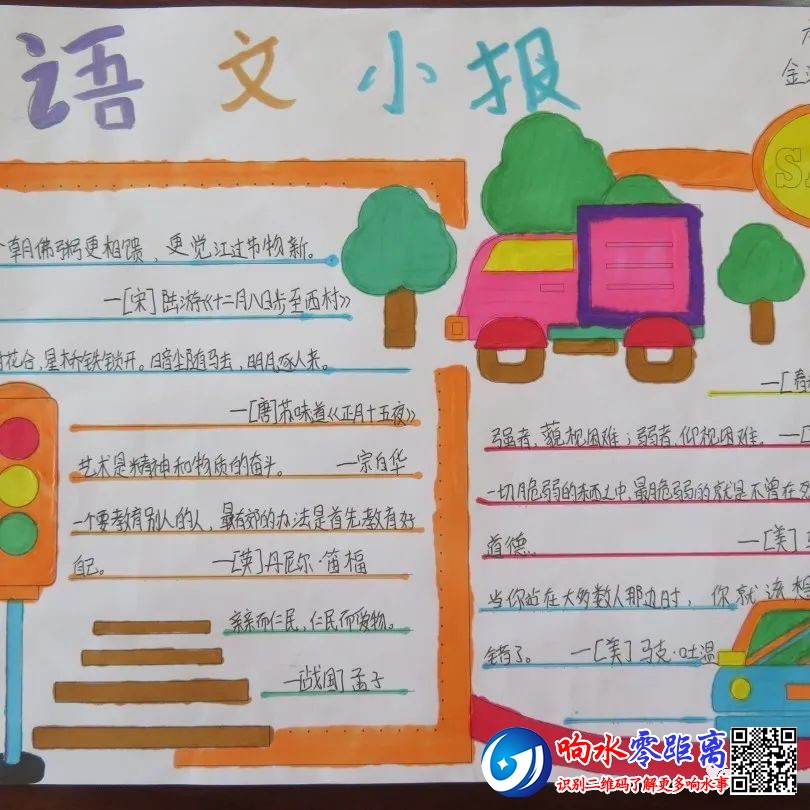 语文小报
金
朝佛粥更相馈，更觉江过节物新。
—[宋]陆游《十二月八日步至西村》
花合，星桥铁锁开。暗尘随马去，明月逐人来。
—[唐]苏味道《正月十五夜》
艺术是精神和物质的奋斗。 —宗白华
一个要教育别人的人，最有效的办法是首先教育好
自己。 —[英]丹尼尔·笛福
亲亲而仁民，仁民而爱物。
—[战国]孟子
强者，藐视困难；弱者，仰视困难。
一切脆弱的东西之中，最脆弱的就是不曾在
道德… —[美]
当你站在大多数人那边时，你就该想
错了。 —[美]马克·吐温
响水零距离
识别二维码了解更多响水事